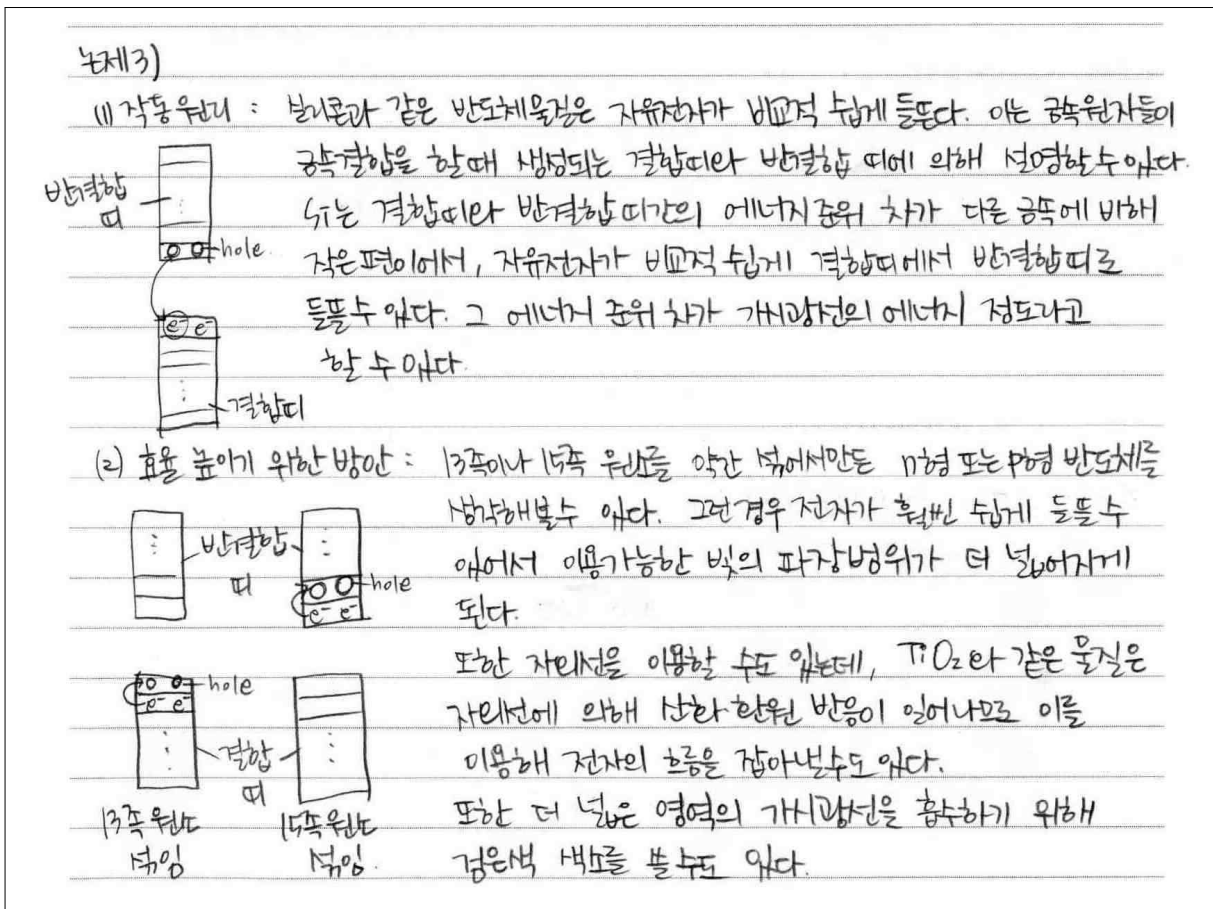 논제3)
(1) 작동원리 : 실리콘과 같은 반도체물질은 자유전자가 비교적 쉽게 들뜬다. 이는 금속원자들이
금속결합을 할때 생성되는 결합띠와 반결합 띠에 의해 설명할수 있다.
Si는 결합띠와 반결합띠간의 에너지준위 차가 다른 금속에 비해
작은편이어서, 자유전자가 비교적 쉽게 결합띠에서 반결합띠로
들뜰수 있다. 그 에너지 준위 차가 가시광선의 에너지 정도라고
할 수 있다.
반결합
띠
hole
e⁻ e⁻
결합띠
(2) 효율 높이기 위한 방안 : 13족이나 15족 원소를 약간 섞어서만든 n형 또는 p형 반도체를
생각해볼수 있다. 그런경우 전자가 훨씬 쉽게 들뜰 수
있어서 이용가능한 빛의 파장범위가 더 넓어지게
된다.
또한 자외선을 이용할 수도 있는데, TiO₂와 같은 물질은
자외선에 의해 산화·환원 반응이 일어나므로 이를
이용해 전자의 흐름을 잡아낼수도 있다.
또한 더 넓은 영역의 가시광선을 흡수하기 위해
검은색 색소를 쓸 수도 있다.
반결합
띠
hole
e⁻ e⁻
hole
e⁻ e⁻
결합
띠
13족 원소
섞임
15족 원소
섞임.